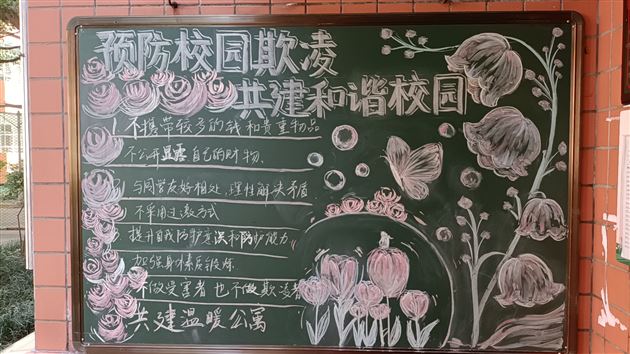 预防校园欺凌
共建和谐校园
1不携带较多的钱和贵重物品
不公开显露自己的财物、
与同学友好相处,理性解决矛盾
不采用过激方式
提升自我防护意识和防护能力
加强身体素质锻炼
不做受害者 也不做欺凌者
共建温暖公寓